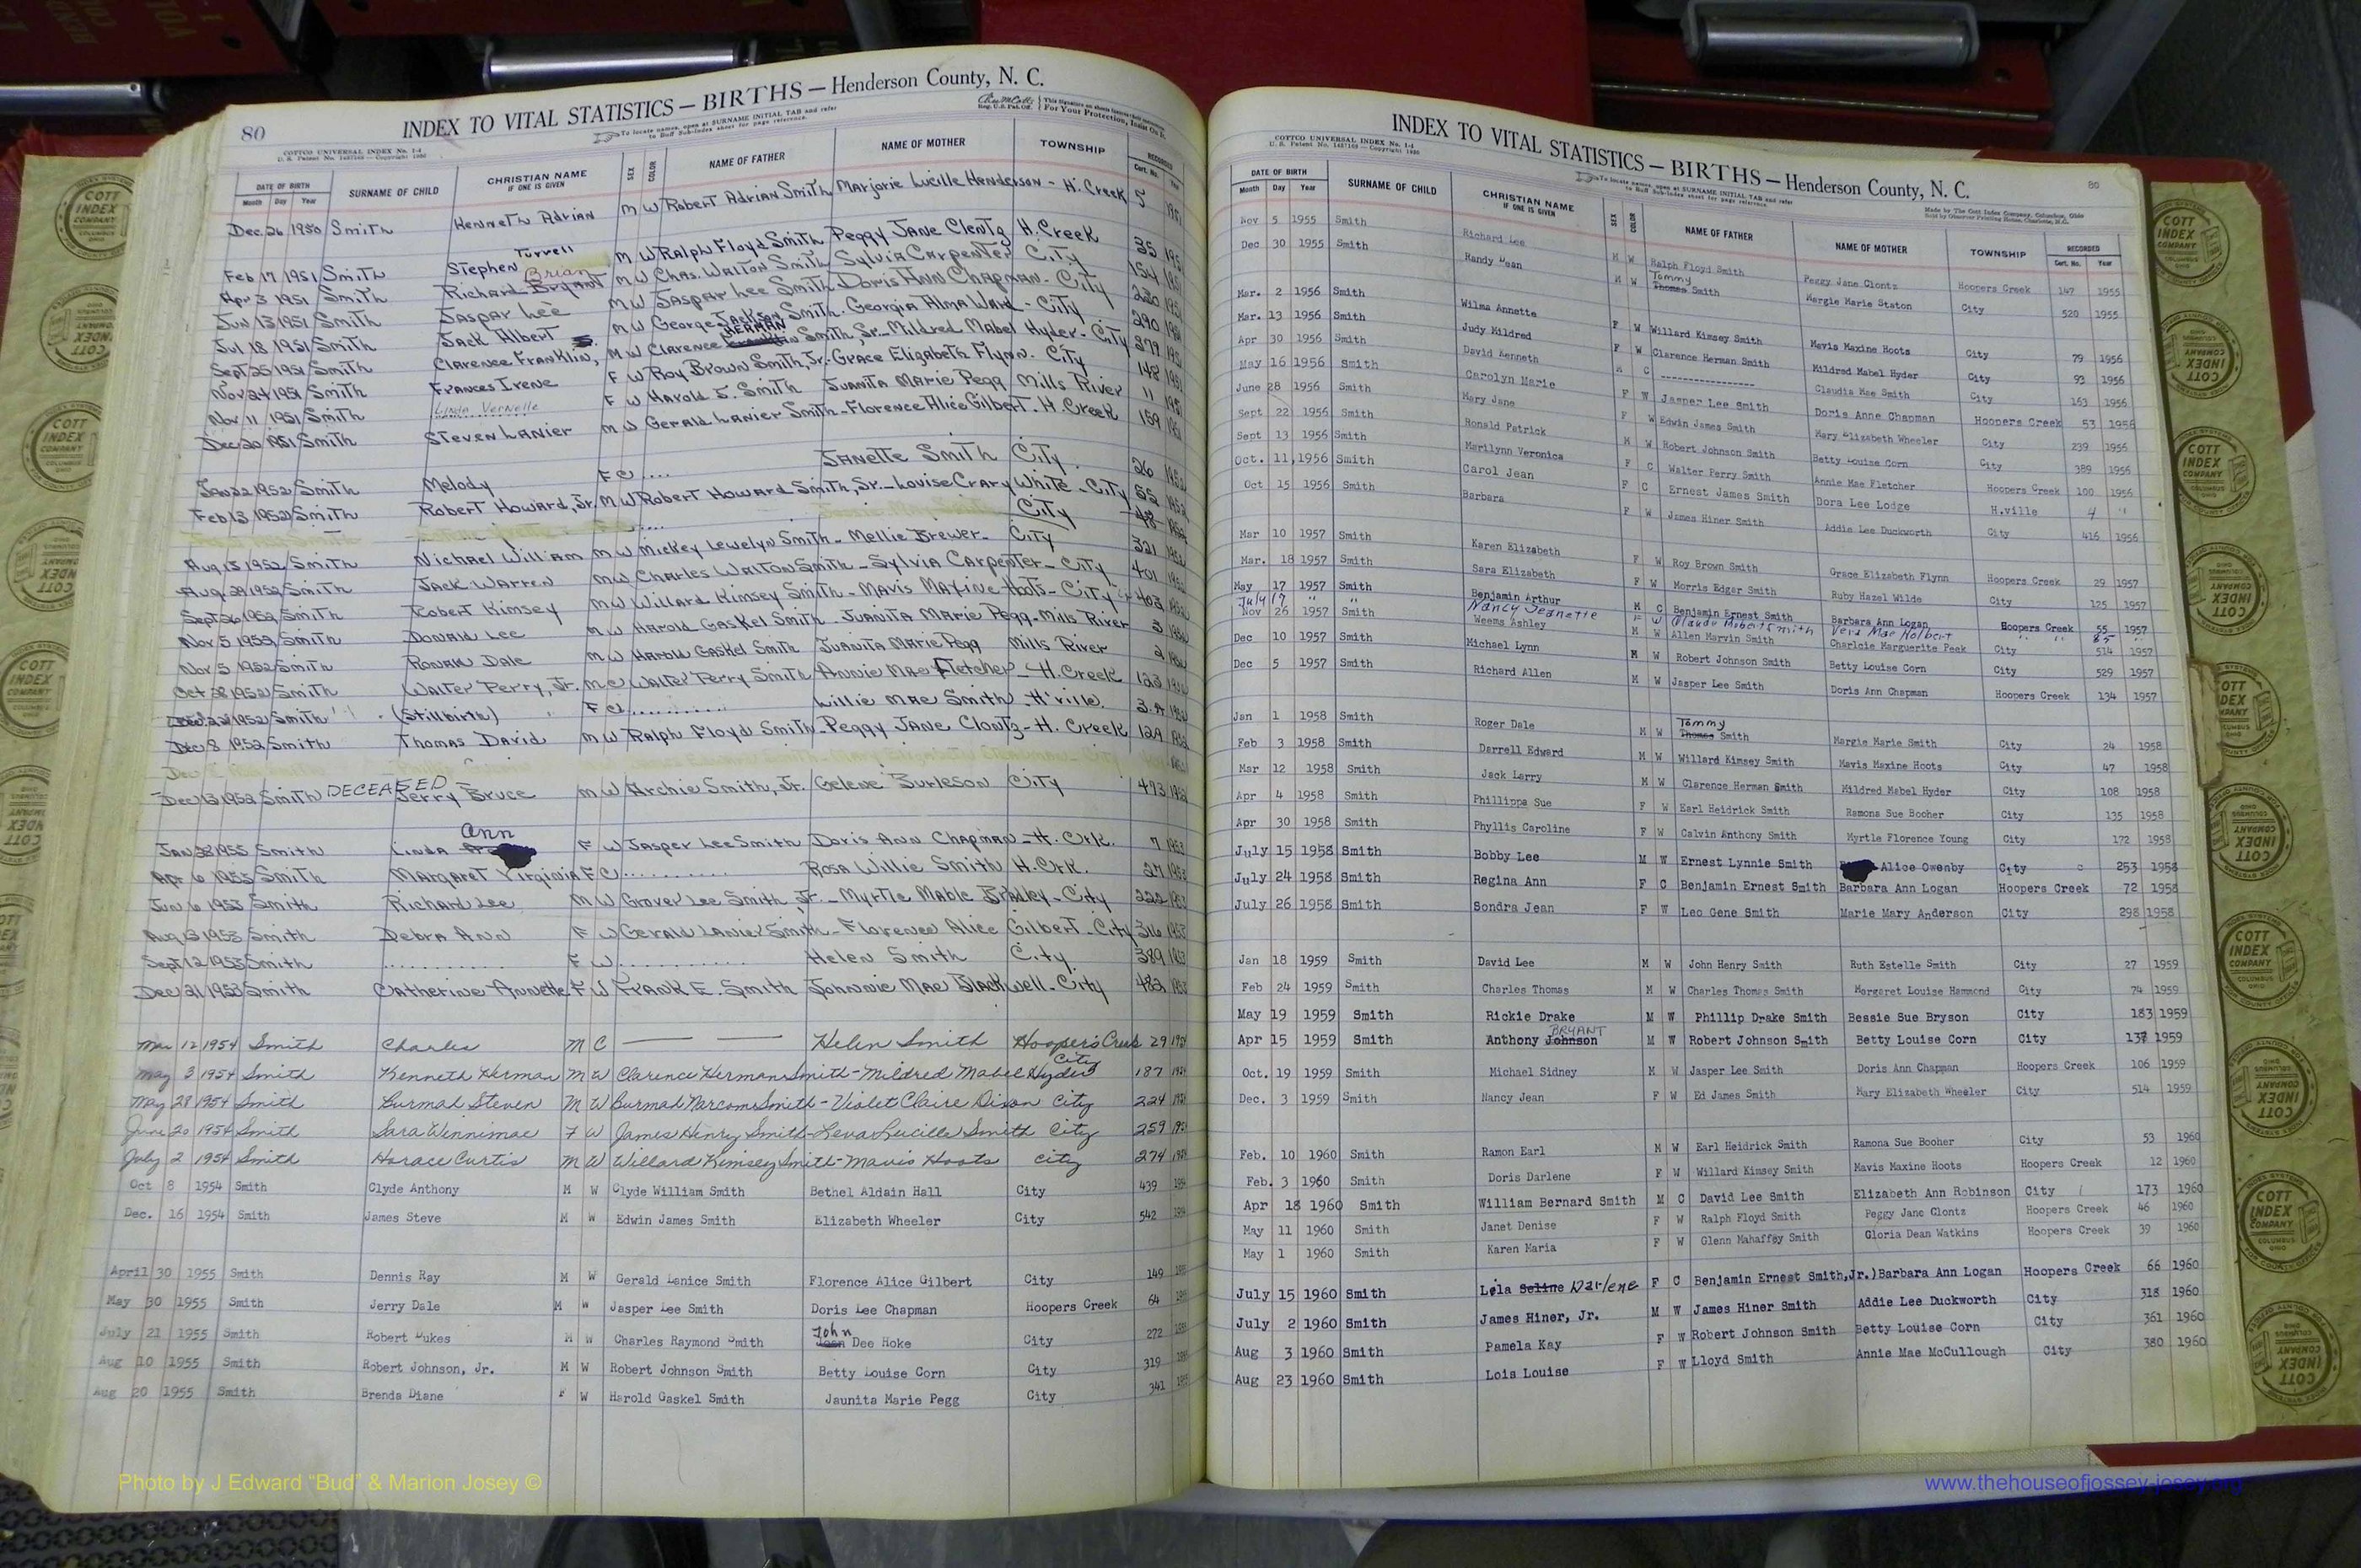 80
INDEX TO VITAL STATISTICS — BIRTHS — Henderson County, N. C.
To locate names, open at SURNAME INITIAL TAB and refer
to Buff Sub-Index sheet for page reference.
COTTCO UNIVERSAL INDEX No. 1-4
DATE OF BIRTH SURNAME OF CHILD CHRISTIAN NAME SEX COLOR NAME OF FATHER NAME OF MOTHER TOWNSHIP RECORDED
Month Day Year IF ONE IS GIVEN Cert. No.
Dec 26 1950 Smith Kenneth Adrian M W Robert Adrian Smith Marjorie Lucille Henderson - H. Creek 5
Feb 17 1951 Smith Stephen Turrell M W Ralph Floyd Smith Peggy Jane Clontz H. Creek 35 1951
Apr 3 1951 Smith Richard Bryant Brian M W Chas. Walton Smith Sylvia Carpenter City 154 1951
Jun 13 1951 Smith Jaspar Lee M W Jaspar Lee Smith Doris Ann Chapman - City 230 1951
Jul 18 1951 Smith Jack Albert M W George Jackson Smith - Georgia Alma Ward - City 290
Sept 25 1951 Smith Clarence Franklin, M W Clarence HERMAN Smith, Sr. - Mildred Mabel Hyder - City 379
Nov 24 1951 Smith Frances Irene F W Roy Brown Smith, Jr. Grace Elizabeth Flynn. City 148
Nov 11 1951 Smith Linda Vernelle F W Harold S. Smith Juanita Marie Pegg Mills River 11
Dec 20 1951 Smith Steven Lanier M W Gerald Lanier Smith - Florence Alice Gilbert. H. Creek 159
Jan 22 1952 Smith Melody F C .... Janette Smith City 26
Feb 13 1952 Smith Robert Howard, Jr. M W Robert Howard Smith, Sr. - Louise Crary White - City 55
City 48
Aug 15 1952 Smith Michael William M W Mickey Lewelyn Smith - Mellie Brewer - City 321
Aug 29 1952 Smith Jack Warren M W Charles Walton Smith - Sylvia Carpenter - City 401
Sept 26 1952 Smith Robert Kimsey M W Willard Kimsey Smith - Mavis Maxine Hoots - City 403
Nov 5 1952 Smith Donald Lee M W Harold Gaskel Smith - Juanita Marie Pegg - Mills River 3
Nov 5 1952 Smith Ronald Dale M W Harold Gaskel Smith Juanita Marie Pegg Mills River 2
Oct 28 1952 Smith Walter Perry, Jr. M C Walter Perry Smith Annie Mae Fletcher - H. Creek 123
1952 Smith (Stillbirth) F C .......... Willie Mae Smith - H'ville.
Dec 8 1952 Smith Thomas David M W Ralph Floyd Smith - Peggy Jane Clontz - H. Creek 129
Dec 13 1952 Smith DECEASED Jerry Bruce M W Archie Smith, Jr. Gelene Burleson City 493
Jan 1953 Smith Linda Ann F W Jasper Lee Smith Doris Ann Chapman - H. Crk. 7 1953
Apr 6 1953 Smith Margaret Virginia F C .......... Rosa Willie Smith H. Crk. 27 1953
Jun 6 1953 Smith Richard Lee M W Grover Lee Smith Jr. - Myrtle Mable Bradley - City 222 1953
Aug 13 1953 Smith Debra Ann F W Gerald Lanier Smith - Florence Alice Gilbert - City 316 1953
Sept 12 1953 Smith .......... F W .......... Helen Smith City 389 1953
Dec 21 1953 Smith Catherine Annette F W Frank E. Smith Johnnie Mae Blackwell - City 482 1953
Mar 12 1954 Smith Charles M C — — Helen Smith Hoopers Creek 29
May 3 1954 Smith Kenneth Herman M W Clarence Herman Smith - Mildred Mabel Hyder City 187
May 28 1954 Smith Burmah Steven M W Burmah Narcom Smith - Violet Claire Dixon City 224
June 20 1954 Smith Sara Wennimae F W James Henry Smith - Leva Lucille Smith City 259
July 2 1954 Smith Horace Curtis M W Willard Kimsey Smith - Mavis Hoots city 274
Oct 8 1954 Smith Clyde Anthony M W Clyde William Smith Bethel Aldain Hall City 439
Dec. 16 1954 Smith James Steve M W Edwin James Smith Elizabeth Wheeler City 542
April 30 1955 Smith Dennis Ray M W Gerald Lanice Smith Florence Alice Gilbert City 149
May 30 1955 Smith Jerry Dale M W Jasper Lee Smith Doris Lee Chapman Hoopers Creek 64
July 21 1955 Smith Robert Dukes M W Charles Raymond Smith John Dee Hoke City 272
Aug 10 1955 Smith Robert Johnson, Jr. M W Robert Johnson Smith Betty Louise Corn City 319
Aug 20 1955 Smith Brenda Diane F W Harold Gaskel Smith Jaunita Marie Pegg City 341
INDEX TO VITAL STATISTICS — BIRTHS — Henderson County, N. C.
80
COTTCO UNIVERSAL INDEX No. 1-4
To locate names, open at SURNAME INITIAL TAB and refer
to Buff Sub-Index sheet for page reference.
Made by The Cott Index Company, Columbus, Ohio
DATE OF BIRTH SURNAME OF CHILD CHRISTIAN NAME SEX COLOR NAME OF FATHER NAME OF MOTHER TOWNSHIP RECORDED
Month Day Year IF ONE IS GIVEN Cert. No. Year
Nov 5 1955 Smith Richard Lee M W Ralph Floyd Smith Peggy Jane Clontz Hoopers Creek 147 1955
Dec 30 1955 Smith Randy Dean M W Thomas Tommy Smith Margie Marie Staton City 520 1955
Mar. 2 1956 Smith Wilma Annette F W Willard Kimsey Smith Mavis Maxine Hoots City 79 1956
Mar. 13 1956 Smith Judy Mildred F W Clarence Herman Smith Mildred Mabel Hyder City 93 1956
Apr 30 1956 Smith David Kenneth M C ---------------- Claudia Mae Smith City 163 1956
May 16 1956 Smith Carolyn Marie F W Jasper Lee Smith Doris Anne Chapman Hoopers Creek 53 1956
June 28 1956 Smith Mary Jane F W Edwin James Smith Mary Elizabeth Wheeler City 239 1956
Sept 22 1956 Smith Ronald Patrick M W Robert Johnson Smith Betty Louise Corn City 389 1956
Sept 13 1956 Smith Marilynn Veronica F C Walter Perry Smith Annie Mae Fletcher Hoopers Creek 100 1956
Oct. 11, 1956 Smith Carol Jean F C Ernest James Smith Dora Lee Lodge H.ville 4 "
Oct 15 1956 Smith Barbara F W James Hiner Smith Addie Lee Duckworth City 416 1956
Mar 10 1957 Smith Karen Elizabeth F W Roy Brown Smith Grace Elizabeth Flynn Hoopers Creek 29 1957
Mar. 18 1957 Smith Sara Elizabeth F W Morris Edgar Smith Ruby Hazel Wilde City 125 1957
May 17 1957 Smith Benjamin Arthur M C Benjamin Ernest Smith Barbara Ann Logan Hoopers Creek 55 1957
July 17 " " Nancy Jeanette F W Claude Robert Smith Vera Mae Holbert " " 85 "
Nov 26 1957 Smith Weems Ashley M W Allen Marvin Smith Charlcie Marguerite Peek City 514 1957
Dec 10 1957 Smith Michael Lynn M W Robert Johnson Smith Betty Louise Corn City 529 1957
Dec 5 1957 Smith Richard Allen M W Jasper Lee Smith Doris Ann Chapman Hoopers Creek 134 1957
Jan 1 1958 Smith Roger Dale M W Thomas Tommy Smith Margie Marie Smith City 24 1958
Feb 3 1958 Smith Darrell Edward M W Willard Kimsey Smith Mavis Maxine Hoots City 47 1958
Mar 12 1958 Smith Jack Larry M W Clarence Herman Smith Mildred Mabel Hyder City 108 1958
Apr 4 1958 Smith Phillippa Sue F W Earl Heidrick Smith Ramona Sue Booher City 135 1958
Apr 30 1958 Smith Phyllis Caroline F W Calvin Anthony Smith Myrtle Florence Young City 172 1958
July 15 1958 Smith Bobby Lee M W Ernest Lynnie Smith Alice Owenby City 253 1958
July 24 1958 Smith Regina Ann F C Benjamin Ernest Smith Barbara Ann Logan Hoopers Creek 72 1958
July 26 1958 Smith Sondra Jean F W Leo Gene Smith Marie Mary Anderson City 298 1958
Jan 18 1959 Smith David Lee M W John Henry Smith Ruth Estelle Smith City 27 1959
Feb 24 1959 Smith Charles Thomas M W Charles Thomas Smith Margaret Louise Hammond City 74 1959
May 19 1959 Smith Rickie Drake M W Phillip Drake Smith Bessie Sue Bryson City 183 1959
Apr 15 1959 Smith Anthony Johnson BRYANT M W Robert Johnson Smith Betty Louise Corn City 137 1959
Oct. 19 1959 Smith Michael Sidney M W Jasper Lee Smith Doris Ann Chapman Hoopers Creek 106 1959
Dec. 3 1959 Smith Nancy Jean F W Ed James Smith Mary Elizabeth Wheeler City 514 1959
Feb. 10 1960 Smith Ramon Earl M W Earl Heidrick Smith Ramona Sue Booher City 53 1960
Feb. 3 1960 Smith Doris Darlene F W Willard Kimsey Smith Mavis Maxine Hoots Hoopers Creek 12 1960
Apr 18 1960 Smith William Bernard Smith M C David Lee Smith Elizabeth Ann Robinson City 173 1960
May 11 1960 Smith Janet Denise F W Ralph Floyd Smith Peggy Jane Clontz Hoopers Creek 46 1960
May 1 1960 Smith Karen Maria F W Glenn Mahaffey Smith Gloria Dean Watkins Hoopers Creek 39 1960
July 15 1960 Smith Lela Seline Darlene F C Benjamin Ernest Smith, Jr.) Barbara Ann Logan Hoopers Creek 66 1960
July 2 1960 Smith James Hiner, Jr. M W James Hiner Smith Addie Lee Duckworth City 318 1960
Aug 3 1960 Smith Pamela Kay F W Robert Johnson Smith Betty Louise Corn City 361 1960
Aug 23 1960 Smith Lois Louise F W Lloyd Smith Annie Mae McCullough City 380 1960
Photo by J Edward “Bud” & Marion Josey ©
www.thehouseofjossey-josey.org